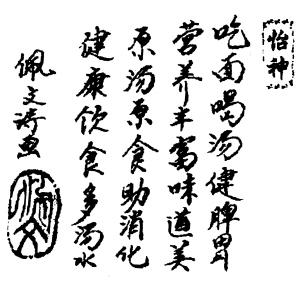 怡神
吃面喝汤健脾胃
营养丰富味道美
原汤原食助消化
健康饮食多汤水
佩文诗画